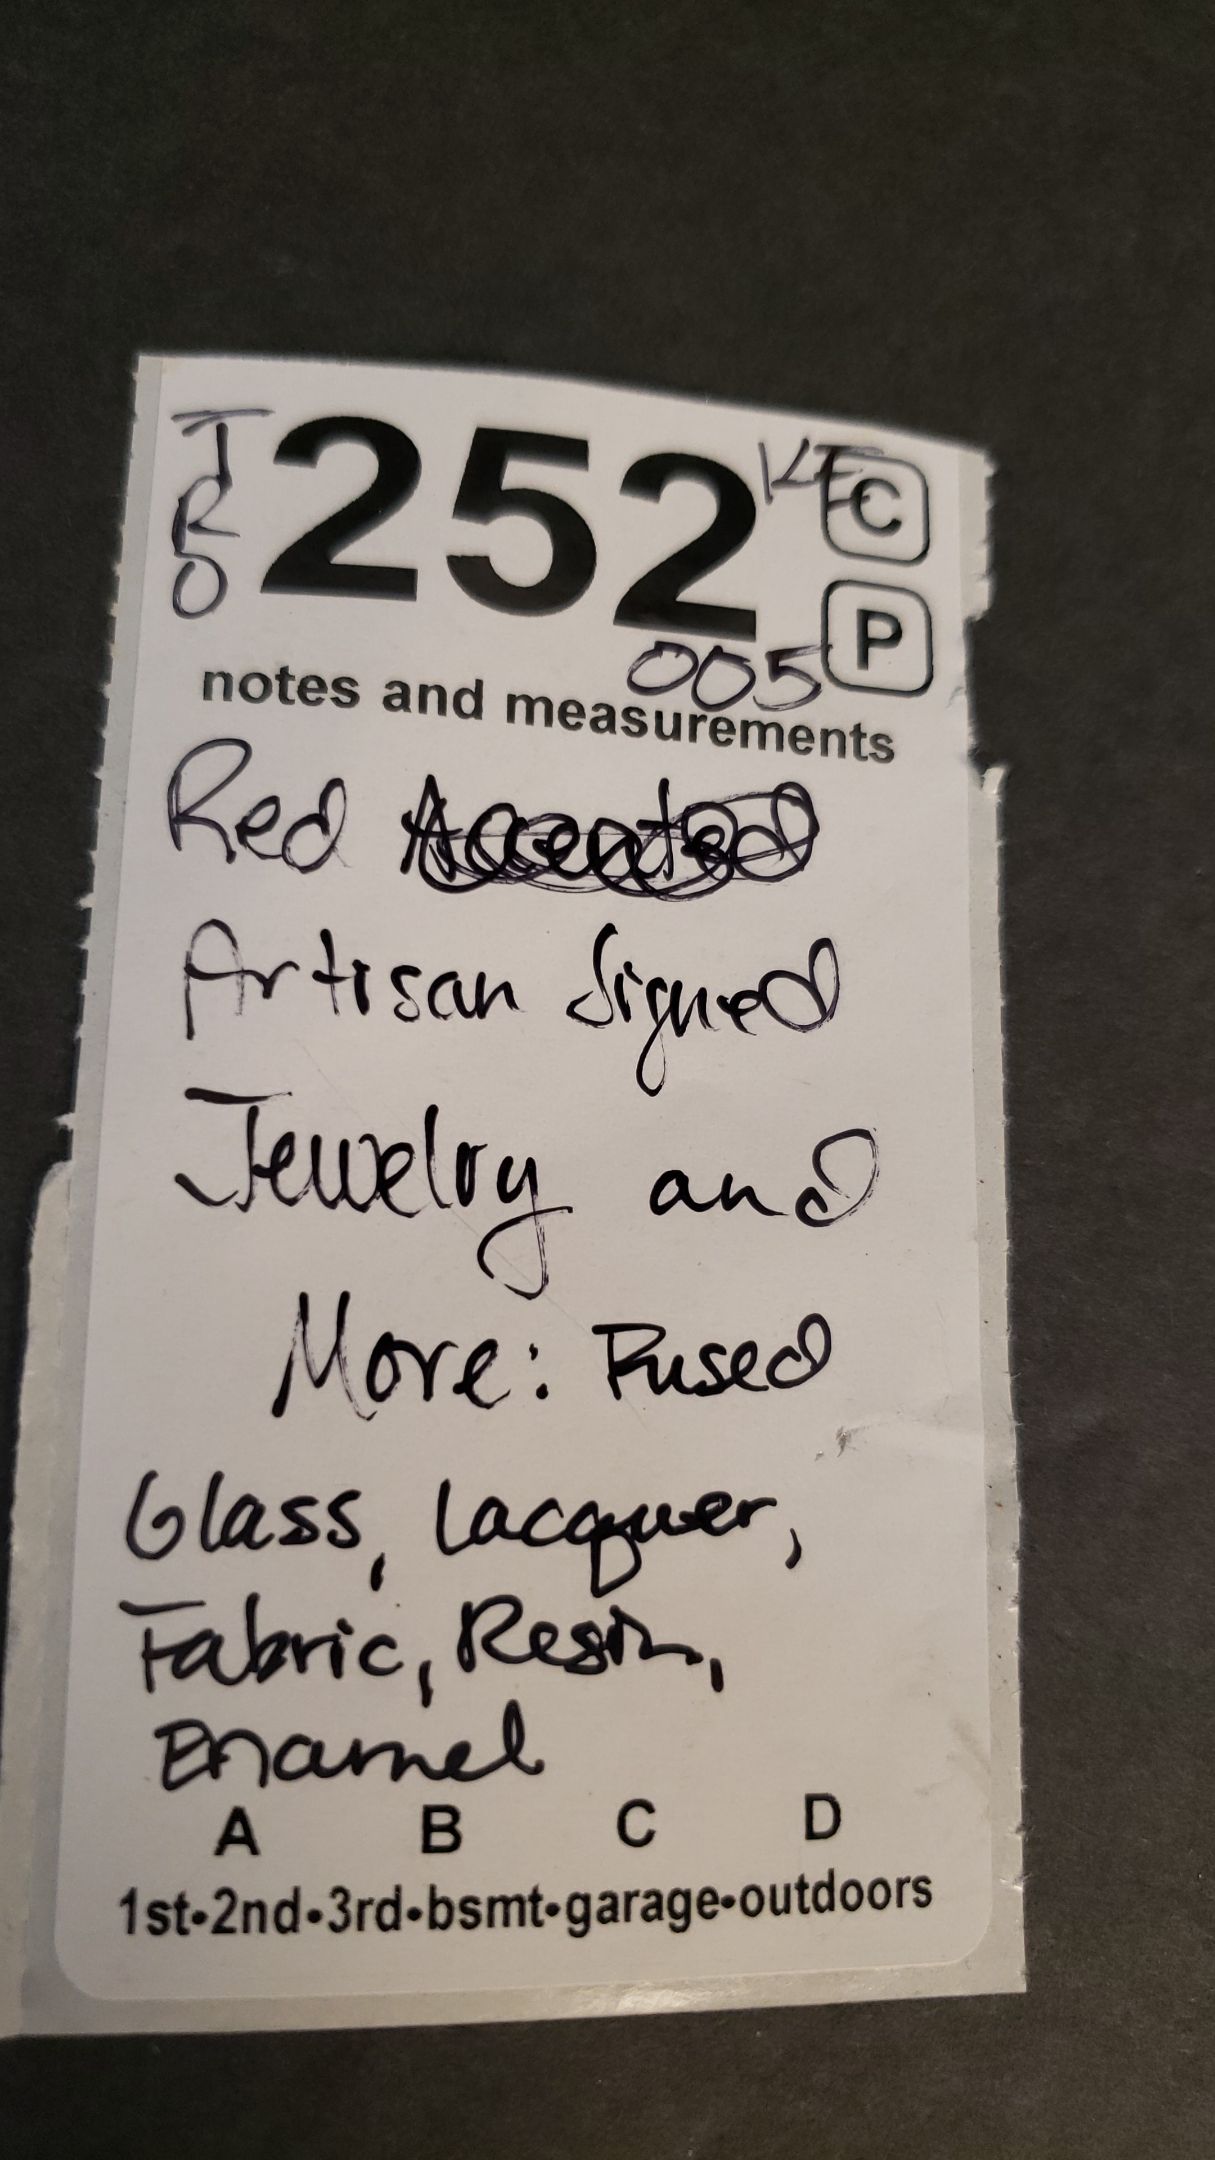 JRO 252 KE C
P
005
notes and measurements
Red Accented
Artisan Signed
Jewelry and
More: Fused
Glass, Lacquer,
Fabric, Resin,
Enamel
A B C D
1st•2nd•3rd•bsmt•garage•outdoors